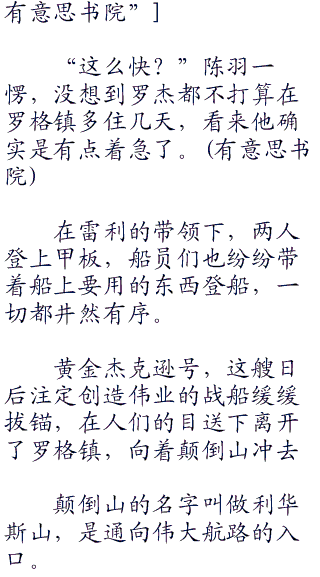 有意思书院”]
“这么快？”陈羽一
愣，没想到罗杰都不打算在
罗格镇多住几天，看来他确
实是有点着急了。(有意思书
院)
在雷利的带领下，两人
登上甲板，船员们也纷纷带
着船上要用的东西登船，一
切都井然有序。
黄金杰克逊号，这艘日
后注定创造伟业的战船缓缓
拔锚，在人们的目送下离开
了罗格镇，向着颠倒山冲去
颠倒山的名字叫做利华
斯山，是通向伟大航路的入
口。